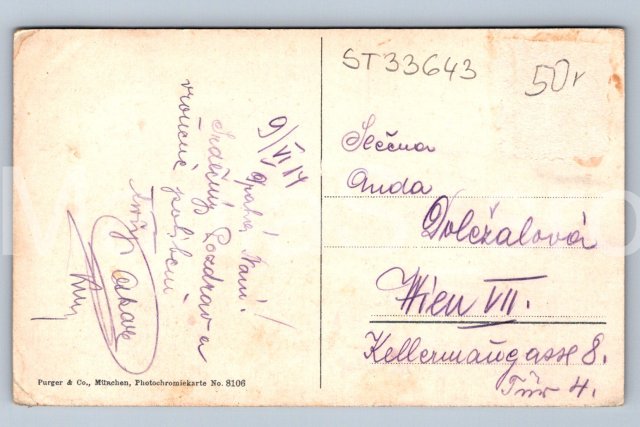 ST33643
50r
9/VI 14
Drahá Nani!
Srdečný Pozdrav a
vroucné políbení
Tvůj
Slečna
Anda
Doležalová
Wien VII.
Kellermanngasse 8.
Tür 4.
Purger & Co., München, Photochromiekarte No. 8106